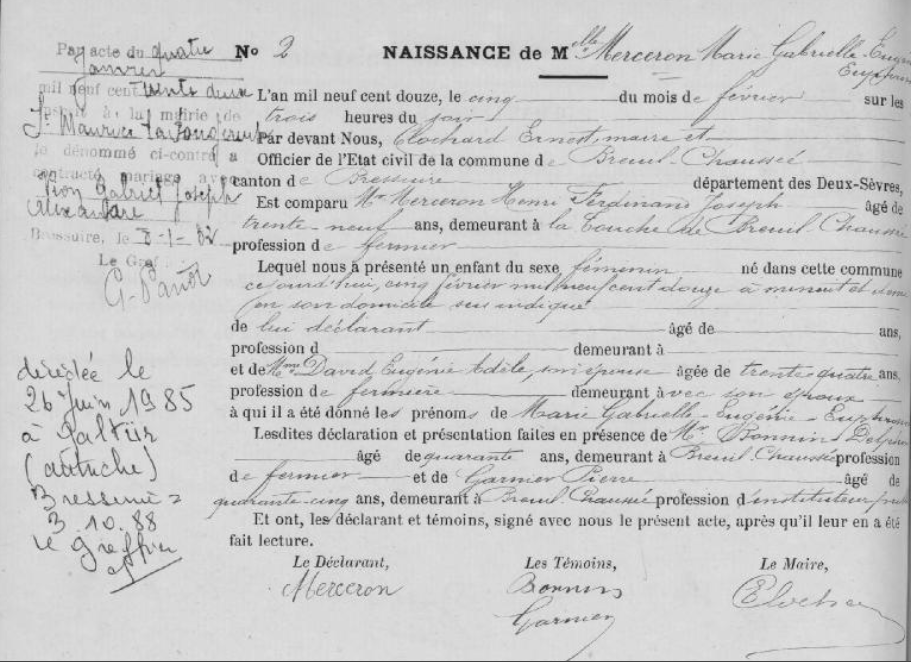 Par acte du quatre
janvier
mil neuf cent trente deux
à la mairie de
St Maurice la Fougereuse
le dénommé ci-contre a
contracté mariage avec
Gabriel Joseph
Alexandre
Bressuire, le 8-1-32
Le Gref
divorcée le
26 Juin 1985
à Galtür
(autriche)
Bressuire
3.10.88
le greffier
No 2 NAISSANCE de Melle Merceron Marie Gabrielle-Eugénie
L'an mil neuf cent douze, le cinq du mois de février sur les
trois heures du soir
Par devant Nous, Clochard Ernest, maire et
Officier de l'Etat civil de la commune de Breuil-Chaussée
canton de Bressuire département des Deux-Sèvres,
Est comparu Mr Merceron Henri Ferdinand Joseph âgé de
trente-neuf ans, demeurant à la Touche de Breuil Chaussée
profession de fermier
Lequel nous a présenté un enfant du sexe féminin né dans cette commune
cejourd'hui, cinq février mil neuf cent douze à minuit et demi
en son domicile sus indiqué
de lui déclarant âgé de ans,
profession d demeurant à
et de Mme David Eugénie Adèle, son épouse âgée de trente quatre ans,
profession de fermière demeurant avec son époux
à qui il a été donné les prénoms de Marie Gabrielle-Eugénie-
Lesdites déclaration et présentation faites en présence de Mr. Bonnin
âgé de quarante ans, demeurant à Breuil-Chaussée profession
de fermier et de Garnier Pierre âgé de
quarante-cinq ans, demeurant à Breuil Chaussée profession d'instituteur
Et ont, les déclarant et témoins, signé avec nous le présent acte, après qu'il leur en a été
fait lecture.
Le Déclarant, Les Témoins, Le Maire,
Merceron Bonnin
Garnier